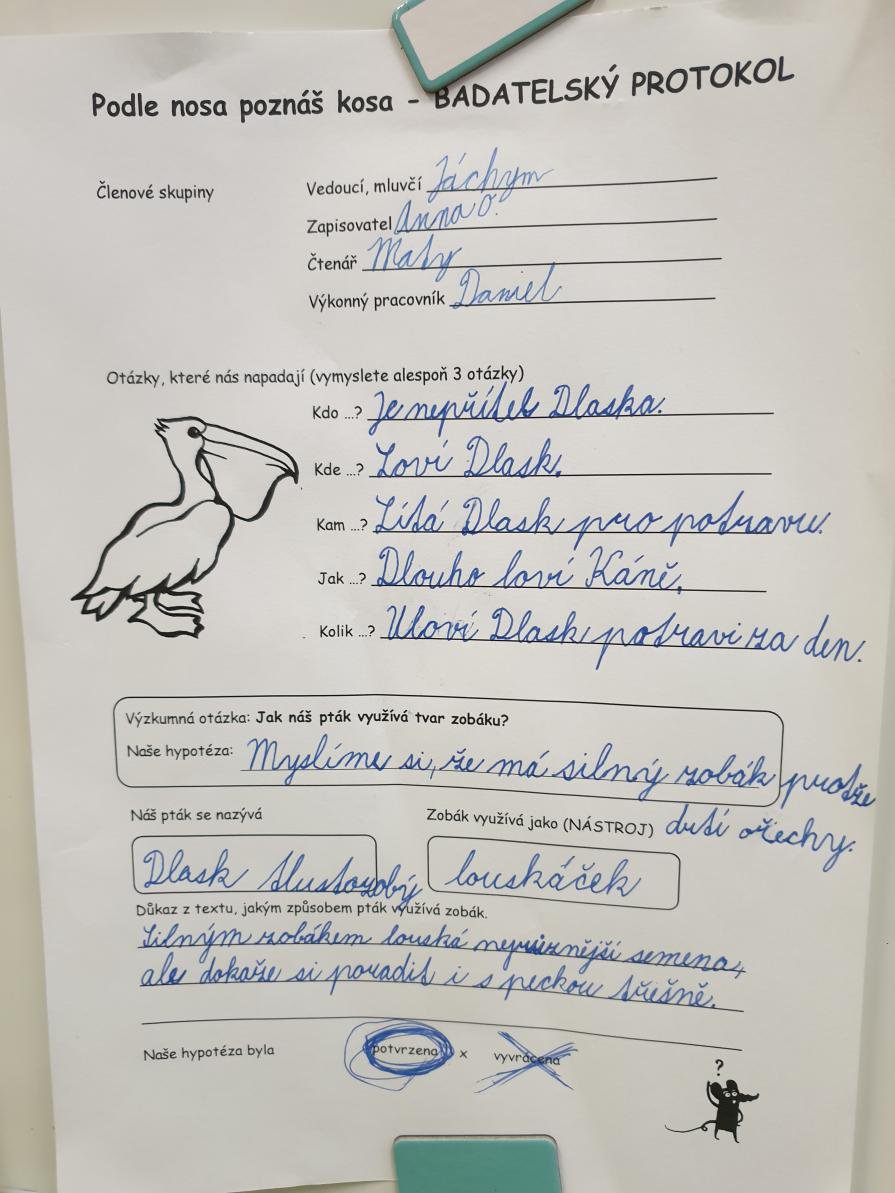 Podle nosa poznáš kosa - BADATELSKÝ PROTOKOL
Členové skupiny
Vedoucí, mluvčí Jáchym
Zapisovatel Anna O.
Čtenář Maty
Výkonný pracovník Daniel
Otázky, které nás napadají (vymyslete alespoň 3 otázky)
Kdo ...? Je nepřítel Dlaska.
Kde ...? Loví Dlask.
Kam ...? Lítá Dlask pro potravu.
Jak ...? Dlouho loví Káně.
Kolik ...? Uloví Dlask potravi za den.
Výzkumná otázka: Jak náš pták využívá tvar zobáku?
Naše hypotéza: Myslíme si, že má silný zobák protže
dutí ořechy.
Náš pták se nazývá
Zobák využívá jako (NÁSTROJ)
Dlask tlustozobý
louskáček
Důkaz z textu, jakým způsobem pták využívá zobák.
Silným zobákem louská nejrůznější semena,
ale dokaže si poradit i s peckou třešně.
Naše hypotéza byla potvrzena x vyvrácena
?